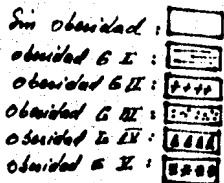 Sin obesidad :
obesidad G I :
obesidad G II :
Obesidad G III :
obesidad G IV :
obesidad G V :